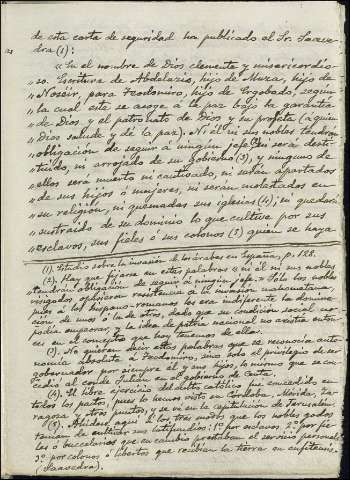 de esta carta de seguridad ha publicado el Sr. Saave-
dra (1):
"En el nombre de Dios clemente y misericordio-
"so. Escritura de Abdelaziz, hijo de Muza, hijo de
"Noseir, para Teodomiro, hijo de Ergobado, según
"la cual este se acoge á la paz bajo la garantía
"de Dios y el patronato de Dios y su profeta (a quien
"Dios salude y dé la paz). Ni él ni sus nobles tendrán
"obligación de seguir á ningún jefe (2) ni será desti-
"tuido, ni arrojado de su gobierno (3), y ninguno de
"ellos será muerto ni cautivado, ni serán apartados
"de sus hijos ó mujeres, ni serán molestados en
"su religión, ni quemadas sus iglesias (4); ni quedará
"sustraido de su dominio lo que cultive por sus
"esclavos, sus fieles ó sus colonos (5) quien se haya
(1). Estudio sobre la invasión de los árabes en España, p. 128.
(2). Hay que fijarse en estas palabras "ni él ni sus nobles
tendrán obligación de seguir á ningún jefe." Solo los nobles
visigodos opusieron resistencia á la invasión musulmana,
pues á los hispano-romanos les era indiferente la domina-
ción de unos ó la de otros, dado que su condición social no
podía empeorar, y la idea de patria nacional no existía enton-
ces en el concepto que hoy tenemos de ella.
(3). No quieren decir estas palabras que se reconocía auto-
nomía absoluta á Teodomiro, sino solo el privilegio de ser
gobernador por siempre él y sus hijos, lo mismo que se con-
cedió al conde Julián en el gobierno de Ceuta.
(4). El libre ejercicio del culto católico fué concedido en
todos los pactos, pues lo hemos visto en Córdoba, Mérida, Za-
ragoza y otros puntos, y se ve en la capitulación de Jerusalén.
(5). Aludese aquí á los tres modos que los nobles godos
tenían de cultivar sus latifundios: 1º por esclavos. 2º por fie-
les ó buccelarios que en cambio prestaban el servicio personal.
3º por colonos ó libertos que recibían la tierra en enfiteusis.
(Saavedra).